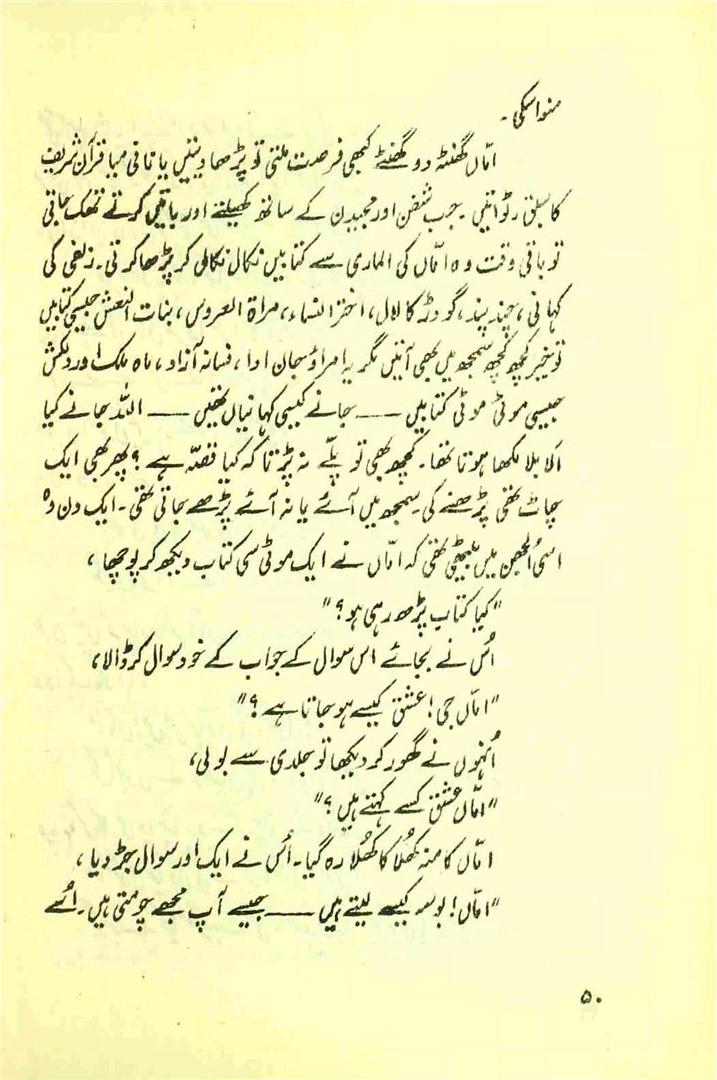 منوا سکی۔
امّاں گھنٹہ دو گھنٹے کبھی فرصت ملتی تو پڑھا دیتیں یا نانی میا قرآن شریف
کا سبق رٹواتیں۔ جب شفن اور مجیدن کے ساتھ کھیلتے اور باتیں کرتے تھک جاتی
تو باقی وقت وہ امّاں کی الماری سے کتابیں نکال نکال کر پڑھا کرتی۔ زلفی کی
کہانی، چند پند، گودڑ کا لال، اختر النساء، مراۃ العروس، بنات النعش جیسی کتابیں
تو خیر کچھ کچھ سمجھ میں بھی آتیں مگر یہ امراؤ جان ادا، فسانہ آزاد، ماہ ملک اور دلکش
جیسی موٹی موٹی کتابیں —— جانے کیسی کہانیاں تھیں —— اللہ جانے کیا
الا بلا لکھا ہوتا تھا۔ کچھ بھی تو پلّے نہ پڑتا کہ کیا قصّہ ہے؟ پھر بھی ایک
چاٹ تھی پڑھنے کی۔ سمجھ میں آئے یا نہ آئے پڑھے جاتی تھی۔ ایک دن وہ
اسی اُلجھن میں بیٹھی تھی کہ امّاں نے ایک موٹی سی کتاب دیکھ کر پوچھا،
"کیا کتاب پڑھ رہی ہو؟"
اُس نے بجائے اس سوال کے جواب کے خود سوال کر ڈالا،
"امّاں جی! عشق کیسے ہو جاتا ہے؟"
اُنہوں نے گھور کر دیکھا تو جلدی سے بولی،
"امّاں عشق کسے کہتے ہیں؟"
امّاں کا منہ کھُلا کا کھُلا رہ گیا۔ اُس نے ایک اور سوال جڑ دیا،
"امّاں! بوسہ کیسے لیتے ہیں —— جیسے آپ مجھے چومتی ہیں۔ اُسے
۵۰